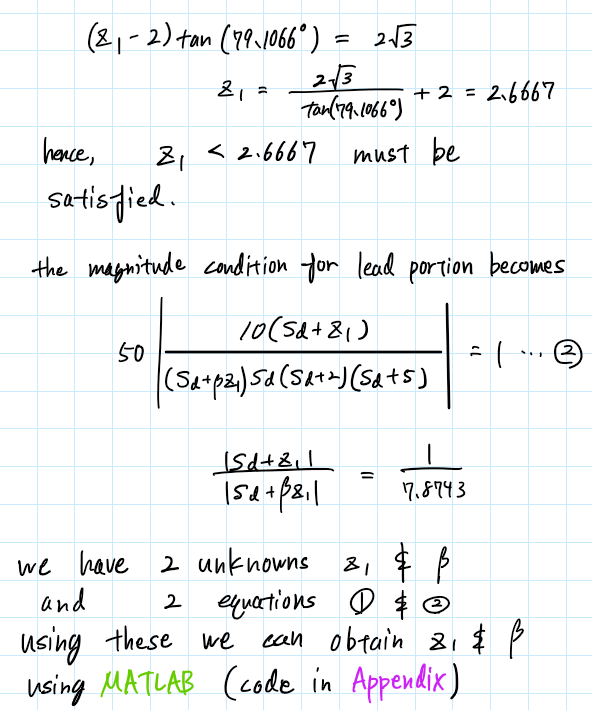 (z₁ - 2) tan (79.1066°) = 2√3
z₁ = 2√3 / tan(79.1066°) + 2 = 2.6667
hence, z₁ < 2.6667 must be
satisfied.
the magnitude condition for lead portion becomes
50 | 10(Sd + z₁) / (Sd+βz₁) Sd (Sd+2)(Sd+5) | = 1 ... ②
|Sd+z₁| / |Sd+βz₁| = 1 / 7.8743
we have 2 unknowns z₁ & β
and 2 equations ① & ②
using these we can obtain z₁ & β
using MATLAB (code in Appendix)